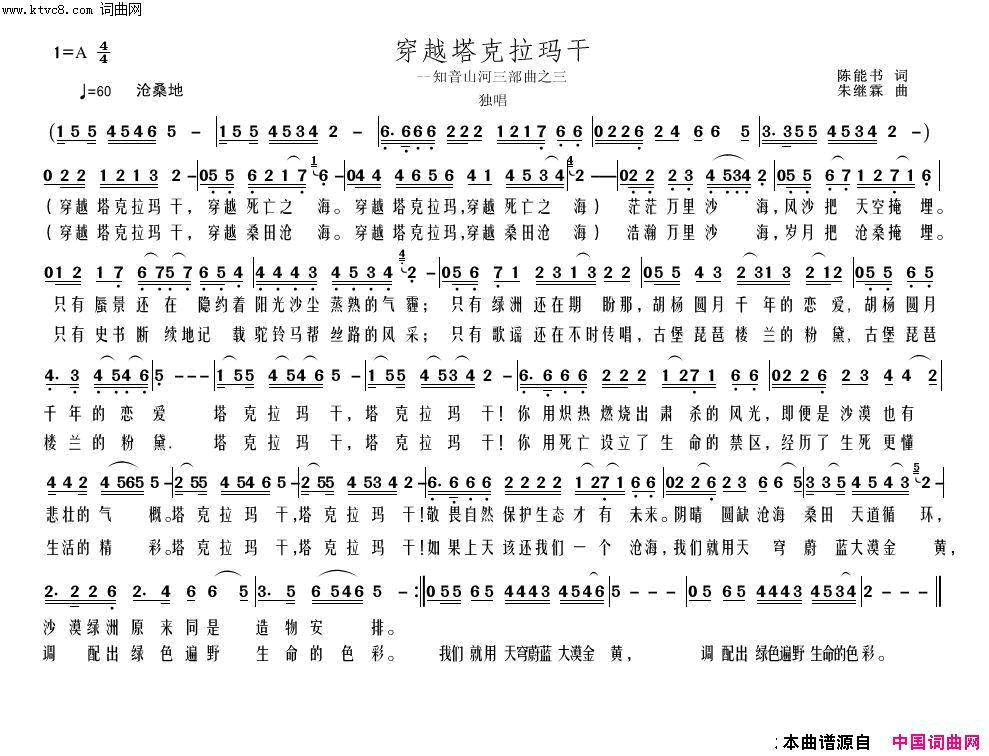 www.ktvc8.com 词曲网
穿越塔克拉玛干
1=A 4/4
--知音山河三部曲之三
陈能书 词
♩=60 沧桑地
独唱
朱继霖 曲
(1 5 5 4 5 4 6 5 - | 1 5 5 4 5 3 4 2 - | 6. 6 6 6 2 2 2 1 2 1 7 6 6 | 0 2 2 6 2 4 6 6 5 | 3. 3 5 5 4 5 3 4 2 -)
0 2 2 1 2 1 3 2 - | 0 5 5 6 2 1 7 1 6 - | 0 4 4 4 6 5 6 4 1 4 5 3 4 4 2 - - | 0 2 2 2 3 4 5 3 4 2 | 0 5 5 6 7 1 2 7 1 6 |
(穿越 塔克拉玛 干, 穿越 死亡之 海。穿越 塔克拉玛,穿越 死亡之 海) 茫茫 万里 沙 海,风沙 把 天空 掩 埋。
(穿越 塔克拉玛 干, 穿越 桑田沧 海。穿越 塔克拉玛,穿越 桑田沧 海) 浩瀚 万里 沙 海,岁月 把 沧桑 掩 埋。
0 1 2 1 7 6 7 5 7 6 5 6 | 4 4 4 3 4 5 3 4 4 2 - | 0 5 6 7 1 2 3 1 3 5 | 0 5 5 4 3 2 3 1 3 2 1 2 | 0 5 6 6 5
只有 蜃景 还 在 隐约着 阳光沙尘 蒸熟的气 霾; 只有 绿洲 还在期 盼那, 胡杨 圆月 千 年的 恋 爱, 胡杨 圆月
只有 史书 断 续地记 载 驼铃马帮 丝路的风 采; 只有 歌谣 还在不时传唱, 古堡 琵琶 楼 兰的 粉 黛, 古堡 琵琶
4. 3 4 5 4 6 5 - - - | 1 5 5 4 5 4 6 5 - | 1 5 5 4 5 3 4 2 - | 6. 6 6 6 2 2 2 1 2 7 1 6 6 | 0 2 2 6 2 3 4 4 2
千 年的 恋 爱 塔 克拉 玛 干, 塔 克拉 玛 干! 你 用炽热 燃烧出 肃 杀的 风光, 即便是 沙漠 也有
楼 兰的 粉 黛. 塔 克拉 玛 干, 塔 克拉 玛 干! 你 用死亡 设立了 生 命的 禁区, 经历了 生死 更懂
4 4 2 4 5 6 5 5 - | 2 5 5 4 5 4 6 5 - | 2 5 5 4 5 3 4 2 - | 6. 6 6 6 2 2 2 1 2 7 1 6 6 | 0 2 2 6 2 3 6 6 5 | 3 5 1 3 4 5 4 3 5 2 -
悲壮的 气 概。塔 克拉 玛 干,塔 克拉 玛 干!敬 畏自然 保护生态 才 有 未来。阴晴 圆缺 沧海 桑田 天道 循 环,
生活的 精 彩。塔 克拉 玛 干,塔 克拉 玛 干!如 果上天 该还我们 一 个 沧海,我们就用天 穹 蔚 蓝大漠金 黄,
2. 2 2 6 2. 4 6 6 5 | 3. 5 6 5 4 6 5 - :|| 0 5 5 6 5 4 4 4 3 4 4 4 6 5 - - - | 0 5 5 6 5 4 4 4 3 4 5 3 4 2 - - - ||
沙 漠绿洲 原 来 同是 造 物 安 排。
调 配出 绿色遍野 生 命的 色 彩。 我们 就用 天穹蔚蓝 大漠金 黄, 调 配出 绿色遍野 生命的 色彩。
:本曲谱源自 中国词曲网